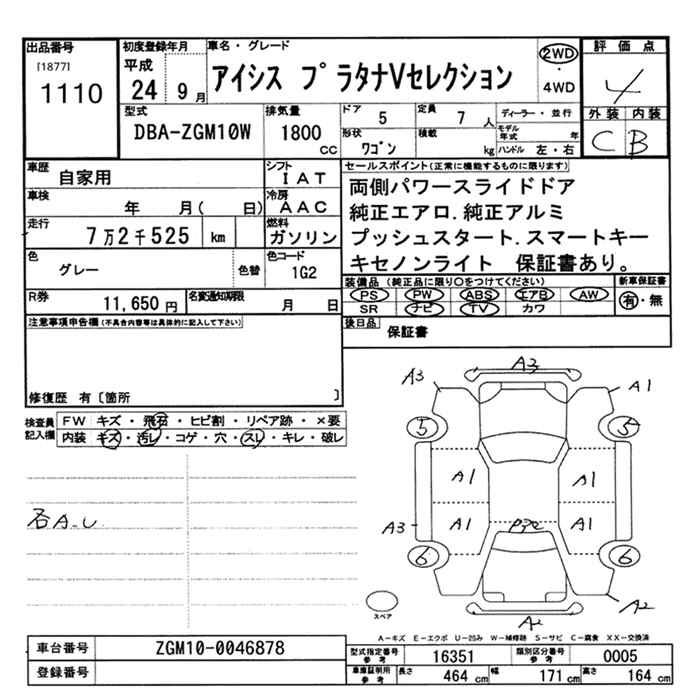 出品番号 初度登録年月 車名・グレード 評価点
[1877] 平成 アイシス プラタナVセレクション 2WD
1110 24 9月 ・ 4WD 4
型式 排気量 ドア 5 定員 7人 ディーラー・並行 外装 内装
DBA-ZGM10W 1800cc 形状 ワゴン 積載 kg モデル年式 年 C B
ハンドル 左・右
車歴 自家用 シフト IAT セールスポイント(正常に機能するものに限ります)
車検 年 月( 日) 冷房 AAC 両側パワースライドドア
走行 7万2千525 km 燃料 ガソリン 純正エアロ.純正アルミ
色 グレー 色替 色コード 1G2 プッシュスタート.スマートキー
キセノンライト 保証書あり。
R券 11,650円 名変通知期限 月 日 装備品(純正品に限り○をつけてください) 新車保証書
PS PW ABS エアB AW 有・無
SR ナビ TV カワ
注意事項申告欄(不具合内容等は具体的に記入して下さい) 後日品 保証書
修復歴 有〔箇所 〕
検査員記入欄 FW キズ・飛石・ヒビ割・リペア跡・×要
内装 キズ・汚レ・コゲ・穴・スレ・キレ・破レ
各A.U
A3 A3 A1
5 5
A1 A1
A3 A1 A1
6 6
A2 A2
スペア
A-キズ E-エクボ U-凹み W-補修跡 S-サビ C-腐食 XX-交換済
車台番号 ZGM10-0046878 型式指定番号参考 16351 類別区分番号参考 0005
登録番号 車庫証明用参考 長さ 464cm 幅 171cm 高さ 164cm